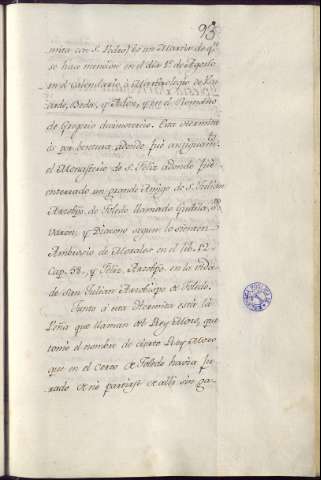 93.
mita con S. Pedro) es un Martir de qn.
se hace mencion en el dia 1º de Agosto
en el Calendario, ò Martirologio de
arde, Beda, y Adon, y en el Romano
de Gregorio decimotercio. Esta Hermita
es por bentura adonde fuè antiguamte.
el Monasterio de S. Feliz adonde fuè
enterrado un grande Amigo de S. Julian
Arzobpo. de Toledo llamado Gudila,
Varon, y Diacono segun lo sienten
Ambrosio de Morales en el lib. 12.
Cap. 58., y Feliz, Arzobpo. en la vida
de San Julian Arzobispo de Toledo.
Junto à esta Hermita està la
Peña que llaman del Rey Moro, que
tomò el nombre de cierto Rey Moro
que en el Cerco de Toledo havia ju-
rado de no partirse de alli sin ga-